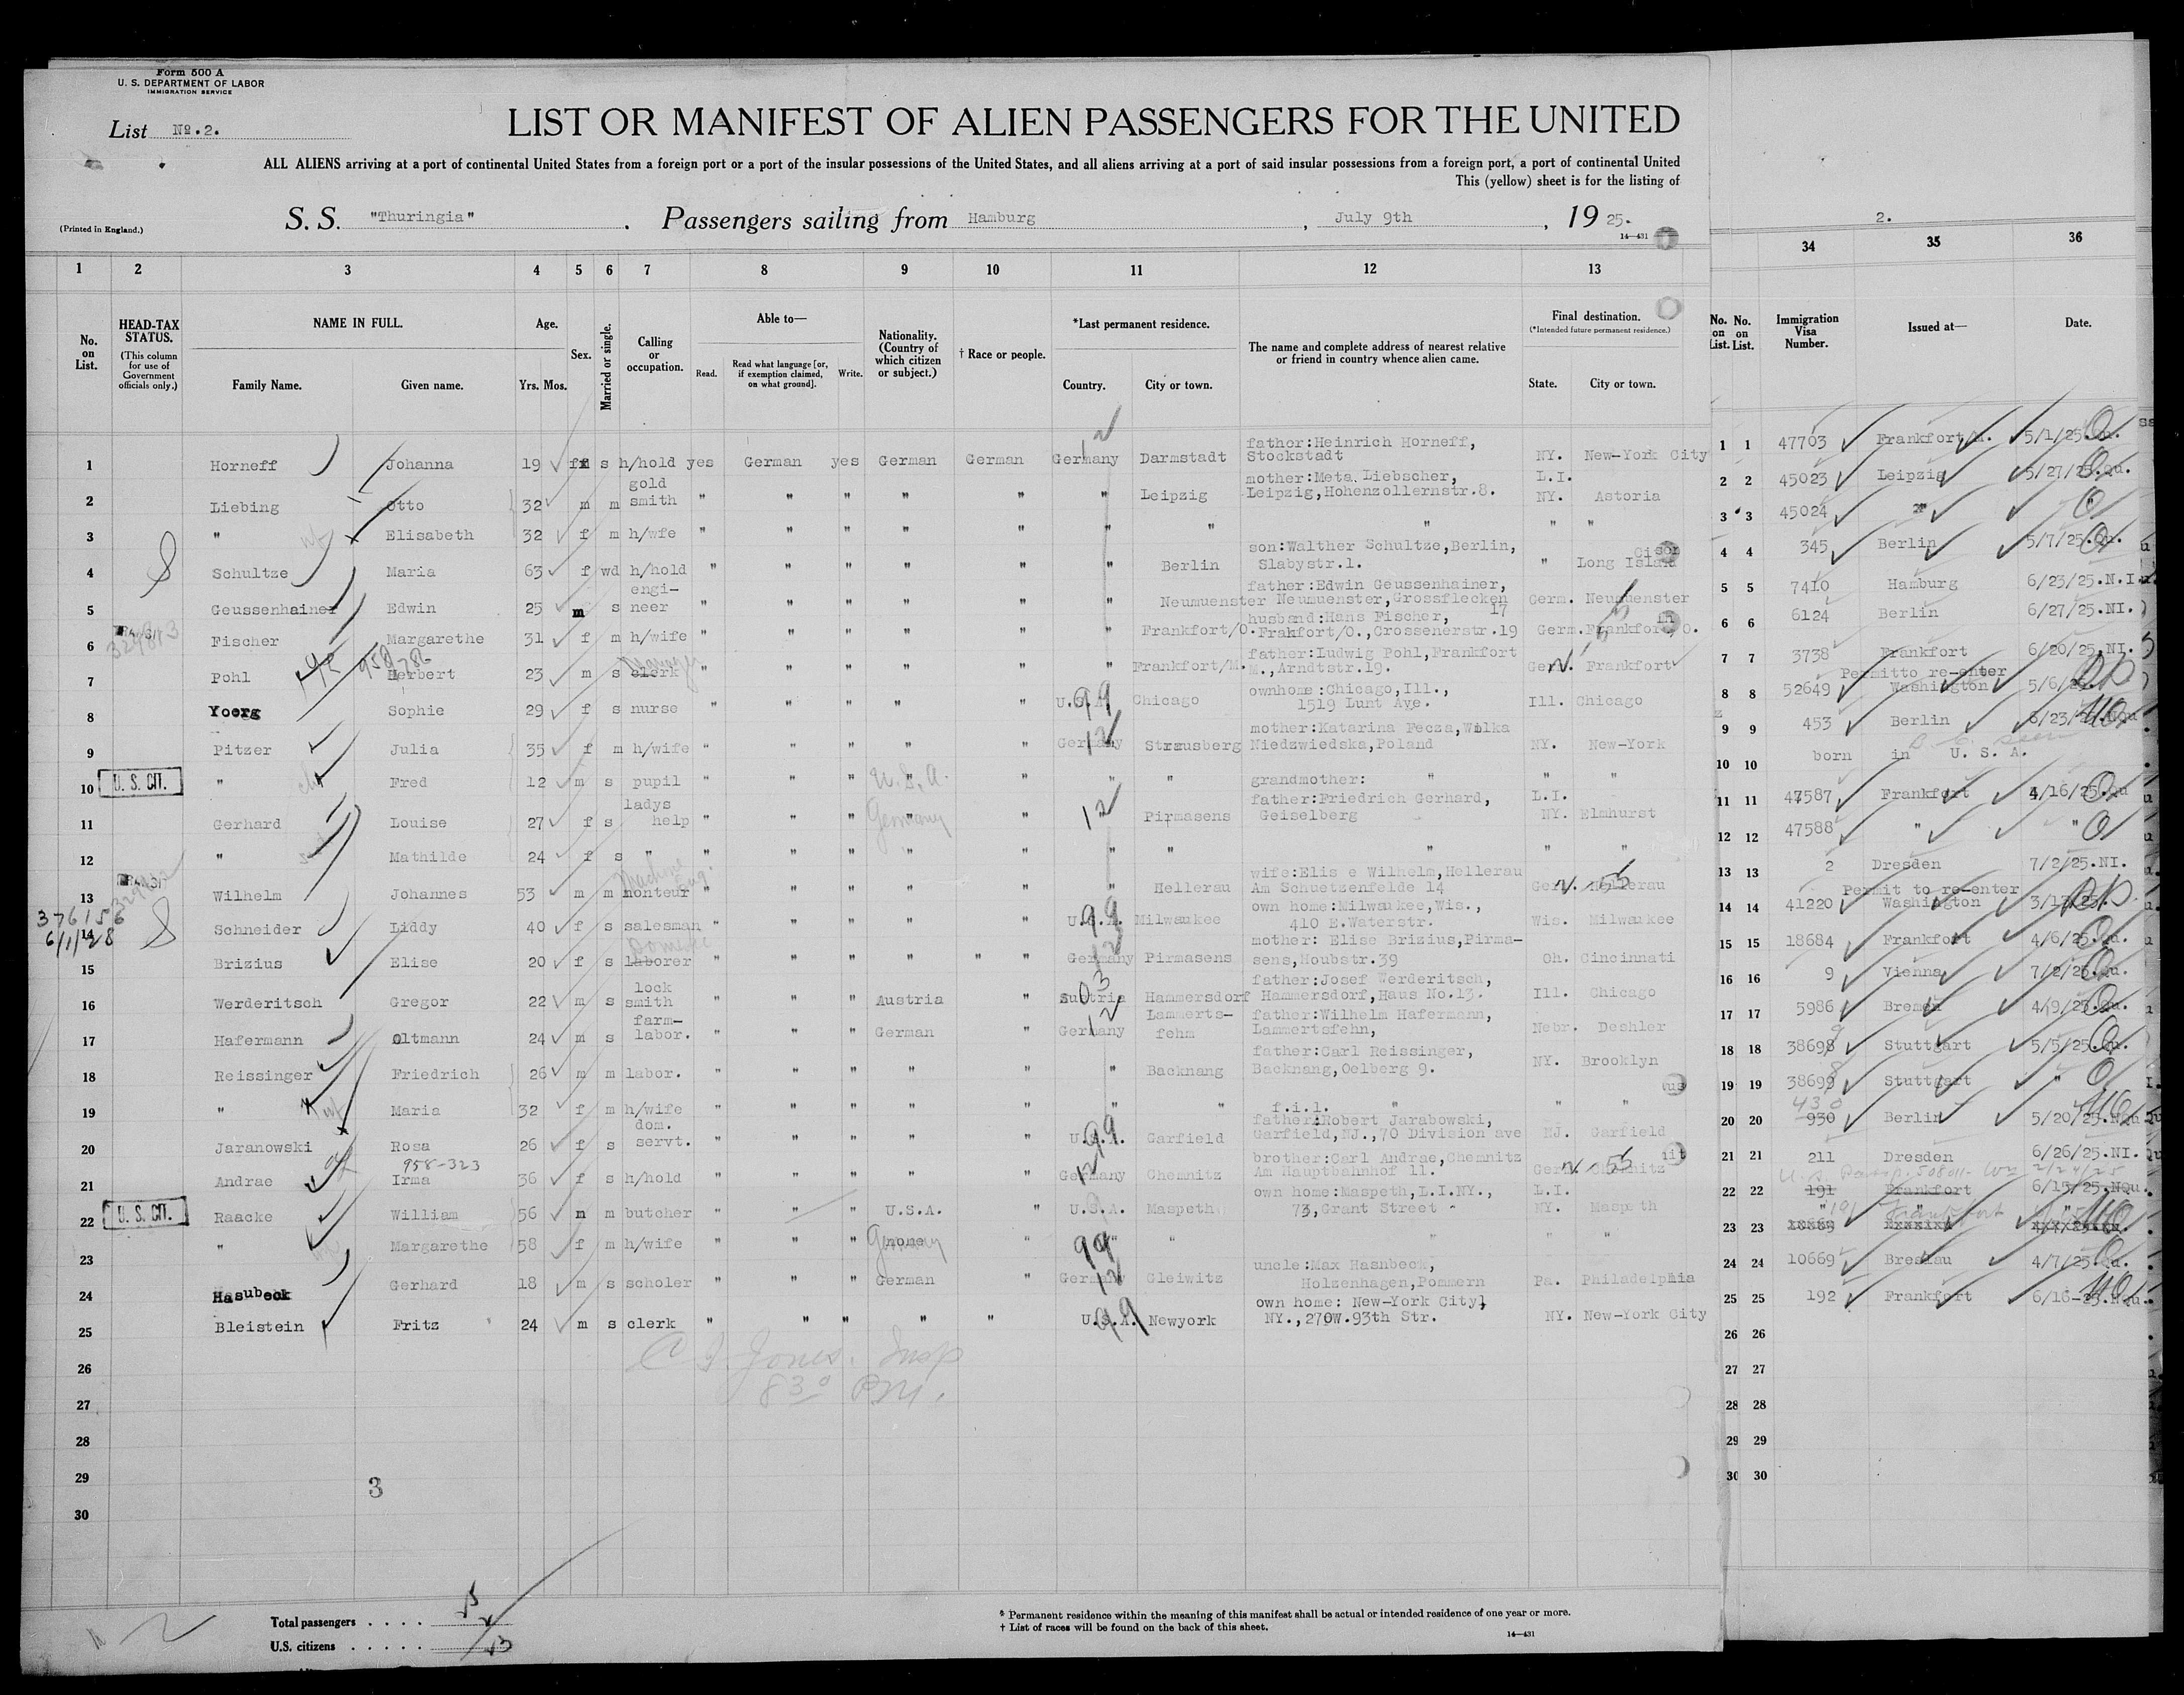 Form 500 A
U. S. DEPARTMENT OF LABOR
IMMIGRATION SERVICE
List No. 2.
LIST OR MANIFEST OF ALIEN PASSENGERS FOR THE UNITED
ALL ALIENS arriving at a port of continental United States from a foreign port or a port of the insular possessions of the United States, and all aliens arriving at a port of said insular possessions from a foreign port, a port of continental United
This (yellow) sheet is for the listing of
(Printed in England.)
S. S. "Thuringia" . Passengers sailing from Hamburg , July 9th , 19 25.
14—431
2.
1 2 3 4 5 6 7 8 9 10 11 12 13 34 35 36
No. on List.
HEAD-TAX STATUS.
(This column for use of Government officials only.)
NAME IN FULL.
Family Name. Given name.
Age.
Yrs. Mos.
Sex.
Married or single.
Calling or occupation.
Able to—
Read.
Read what language [or, if exemption claimed, on what ground].
Write.
Nationality. (Country of which citizen or subject.)
† Race or people.
*Last permanent residence.
Country. City or town.
The name and complete address of nearest relative or friend in country whence alien came.
Final destination.
(*Intended future permanent residence.)
State. City or town.
No. on List. No. on List.
Immigration Visa Number.
Issued at—
Date.
father:Heinrich Horneff,
1 Horneff Johanna 19 f s h/hold yes German yes German German Germany Darmstadt Stockstadt NY. New-York City 1 1 47703 Frankfort 5/1/25. Qu.
gold mother:Meta Liebscher, L.I.
2 Liebing Otto 32 m m smith " " " " " " Leipzig Leipzig,Hohenzollernstr.8. NY. Astoria 2 2 45023 Leipzig 5/27/25.Qu.
3 " Elisabeth 32 f m h/wfe " " " " " " " " " " 3 3 45024 " "
son:Walther Schultze,Berlin,
4 Schultze Maria 63 f wd h/hold " " " " " " Berlin Slabystr.1. " Long Island 4 4 345 Berlin 5/7/25.Qu.
engi- father:Edwin Geussenhainer,
5 Geussenhainer Edwin 25 m s neer " " " " " " Neumuenster Neumuenster,Grossflecken 17 Germ. Neumuenster 5 5 7410 Hamburg 6/23/25.N.I.
husband:Hans Fischer,
6 Fischer Margarethe 31 f m h/wife " " " " " " Frankfort/O. Frakfort/O.,Crossenerstr.19 Germ. Frankfort/O. 6 6 6124 Berlin 6/27/25.NI.
father:Ludwig Pohl,Frankfort
7 Pohl Herbert 23 m s clerk Manager " " " " " " Frankfort/M. M.,Arndtstr.19. Germ. Frankfort 7 7 3738 Frankfort 6/20/25.NI.
ownhome:Chicago,Ill., Permitto re-enter
8 Yoerg Sophie 29 f s nurse " " " " " U.S.A. Chicago 1519 Lunt Ave. Ill. Chicago 8 8 52649 Washington 5/6/25.
mother:Katarina Pecza,Wolka
9 Pitzer Julia 35 f m h/wife " " " " " Germany Strausberg Niedzwiedska,Poland NY. New-York 9 9 453 Berlin 6/23/25.NQu
10 U. S. CIT. " Fred 12 m s pupil " " " U.S.A. " " " grandmother: " " " 10 10 born in U. S. A.
ladys father:Friedrich Gerhard, L.I.
11 Gerhard Louise 27 f s help " " " Germany " 12 Pirmasens Geiselberg NY. Elmhurst 11 11 47587 Frankfort 4/16/25.Qu
12 " Mathilde 24 f s " " " " " " " " " " 12 12 47588 " "
wife:Elis e Wilhelm,Hellerau
13 Wilhelm Johannes 53 m m monteur " " " " " " Hellerau Am Schuetzenfelde 14 Germ. Hellerau 13 13 2 Dresden 7/2/25.NI.
376156
6/1/28
own home:Milwaukee,Wis., Permit to re-enter
14 Schneider Liddy 40 f s salesman " " " " " U.S.A. Milwaukee 410 E.Waterstr. Wis. Milwaukee 14 14 41220 Washington
mother: Elise Brizius,Pirma-
15 Brizius Elise 20 f s laborer Domestic " " " " " " Germany Pirmasens sens,Houbstr.39 Oh. Cincinnati 15 15 18684 Frankfort 4/6/25.Qu.
lock father:Josef Werderitsch,
16 Werderitsch Gregor 22 m s smith " " " Austria " Austria Hammersdorf Hammersdorf,Haus No.13. Ill. Chicago 16 16 9 Vienna 7/2/25.Qu.
farm- Lammerts- father:Wilhelm Hafermann,
17 Hafermann Oltmann 24 m s labor. " " " German " Germany fehm Lammertsfehn, Nebr. Deshler 17 17 5986 Bremen 4/9/25.Qu.
father:Carl Reissinger,
18 Reissinger Friedrich 26 m m labor. " " " " " " Backnang Backnang,Oelberg 9. NY. Brooklyn 18 18 38698 Stuttgart 5/5/25.Qu.
19 " Maria 32 f m h/wife " " " " " " " f.i.l. " " " 19 19 38699 Stuttgart "
dom. father:Robert Jarabowski,
20 Jaranowski Rosa 26 f s servt. " " " " " U.S.A. Garfield Garfield,NJ.,70 Division ave NJ. Garfield 20 20 430 930 Berlin 5/20/25.NQu
958-323 brother:Carl Andrae,Chemnitz
21 Andrae Irma 36 f s h/hold " " " " " Germany Chemnitz Am Hauptbahnhof 11. Germ. Chemnitz 21 21 211 Dresden 6/26/25.NI.
own home:Maspeth,L.I.NY., L.I.
22 U. S. CIT. Raacke William 56 m m butcher " " " U.S.A. " U.S.A. Maspeth 73,Grant Street NY. Maspeth 22 22 191 Frankfort 6/15/25.NQu.
23 " Margarethe 58 f m h/wife " " " none Germany " " " " " " 23 23 191 Frankfort
uncle:Max Hasnbeck,
24 Hasubeck Gerhard 18 m s scholer " " " German " Germany Gleiwitz Holzenhagen,Pommern Pa. Philadelphia 24 24 10669 Breslau 4/7/25.Qu.
own home: New-York City,
25 Bleistein Fritz 24 m s clerk " " " " " U.S.A. Newyork NY.,270W.93th Str. NY. New-York City 25 25 192 Frankfort 6/16-25.NQu.
C. J. Jones. Insp
8 30 P.M.
26 26 26
27 27 27
28 28 28
29 29 29
30 30 30
3
Total passengers . . . .
U.S. citizens . . . . .
* Permanent residence within the meaning of this manifest shall be actual or intended residence of one year or more.
† List of races will be found on the back of this sheet.
14—431